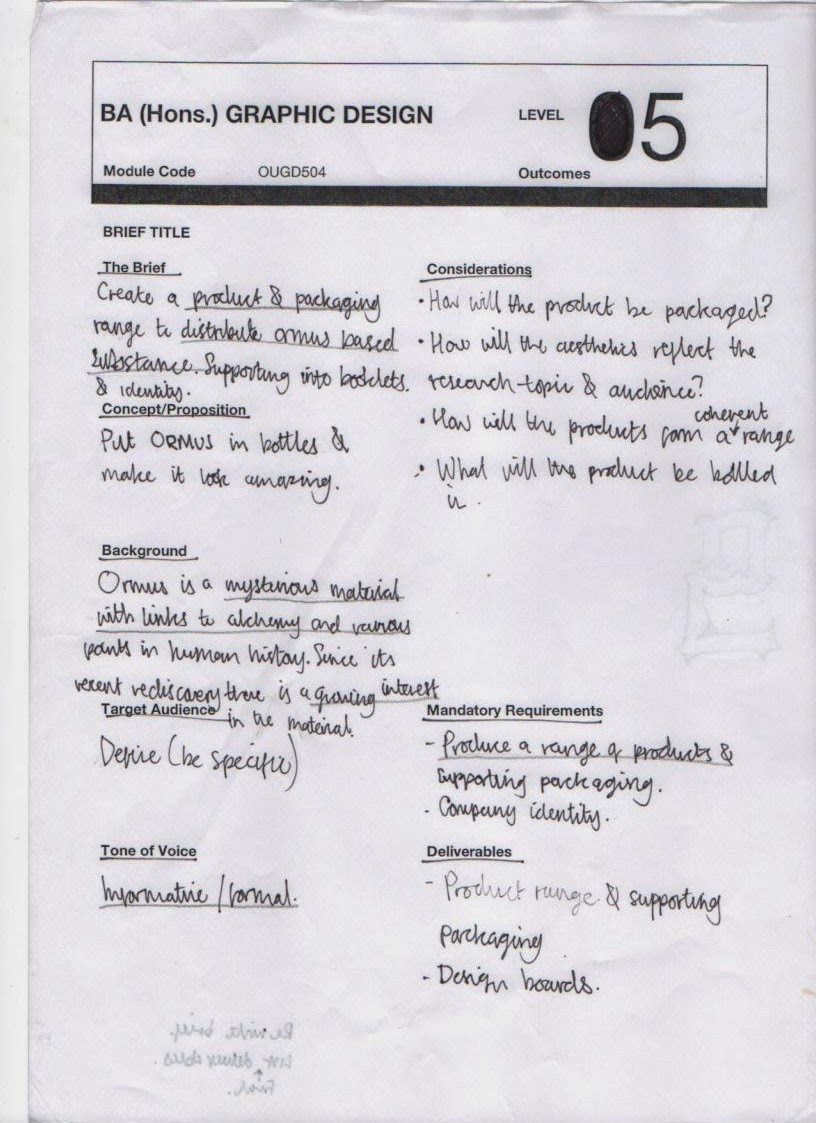 BA (Hons.) GRAPHIC DESIGN
LEVEL 05
Module Code OUGD504
Outcomes
BRIEF TITLE
The Brief
Create a product & packaging
range to distribute ormus based
substance. Supporting info booklets.
& identity.
Concept/Proposition
Put ORMUS in bottles &
make it look amazing.
Background
Ormus is a mysterious material
with links to alchemy and various
points in human history. Since its
recent rediscovery there is a growing interest
in the material.
Target Audience
Define (be specific)
Tone of Voice
Informative / formal.
Considerations
• How will the product be packaged?
• How will the aesthetics reflect the
research topic & audience?
• How will the products form a coherent range
• What will the product be bottled
in.
Mandatory Requirements
- Produce a range of products &
supporting packaging.
- Company identity.
Deliverables
- Product range & supporting
packaging
- Design boards.